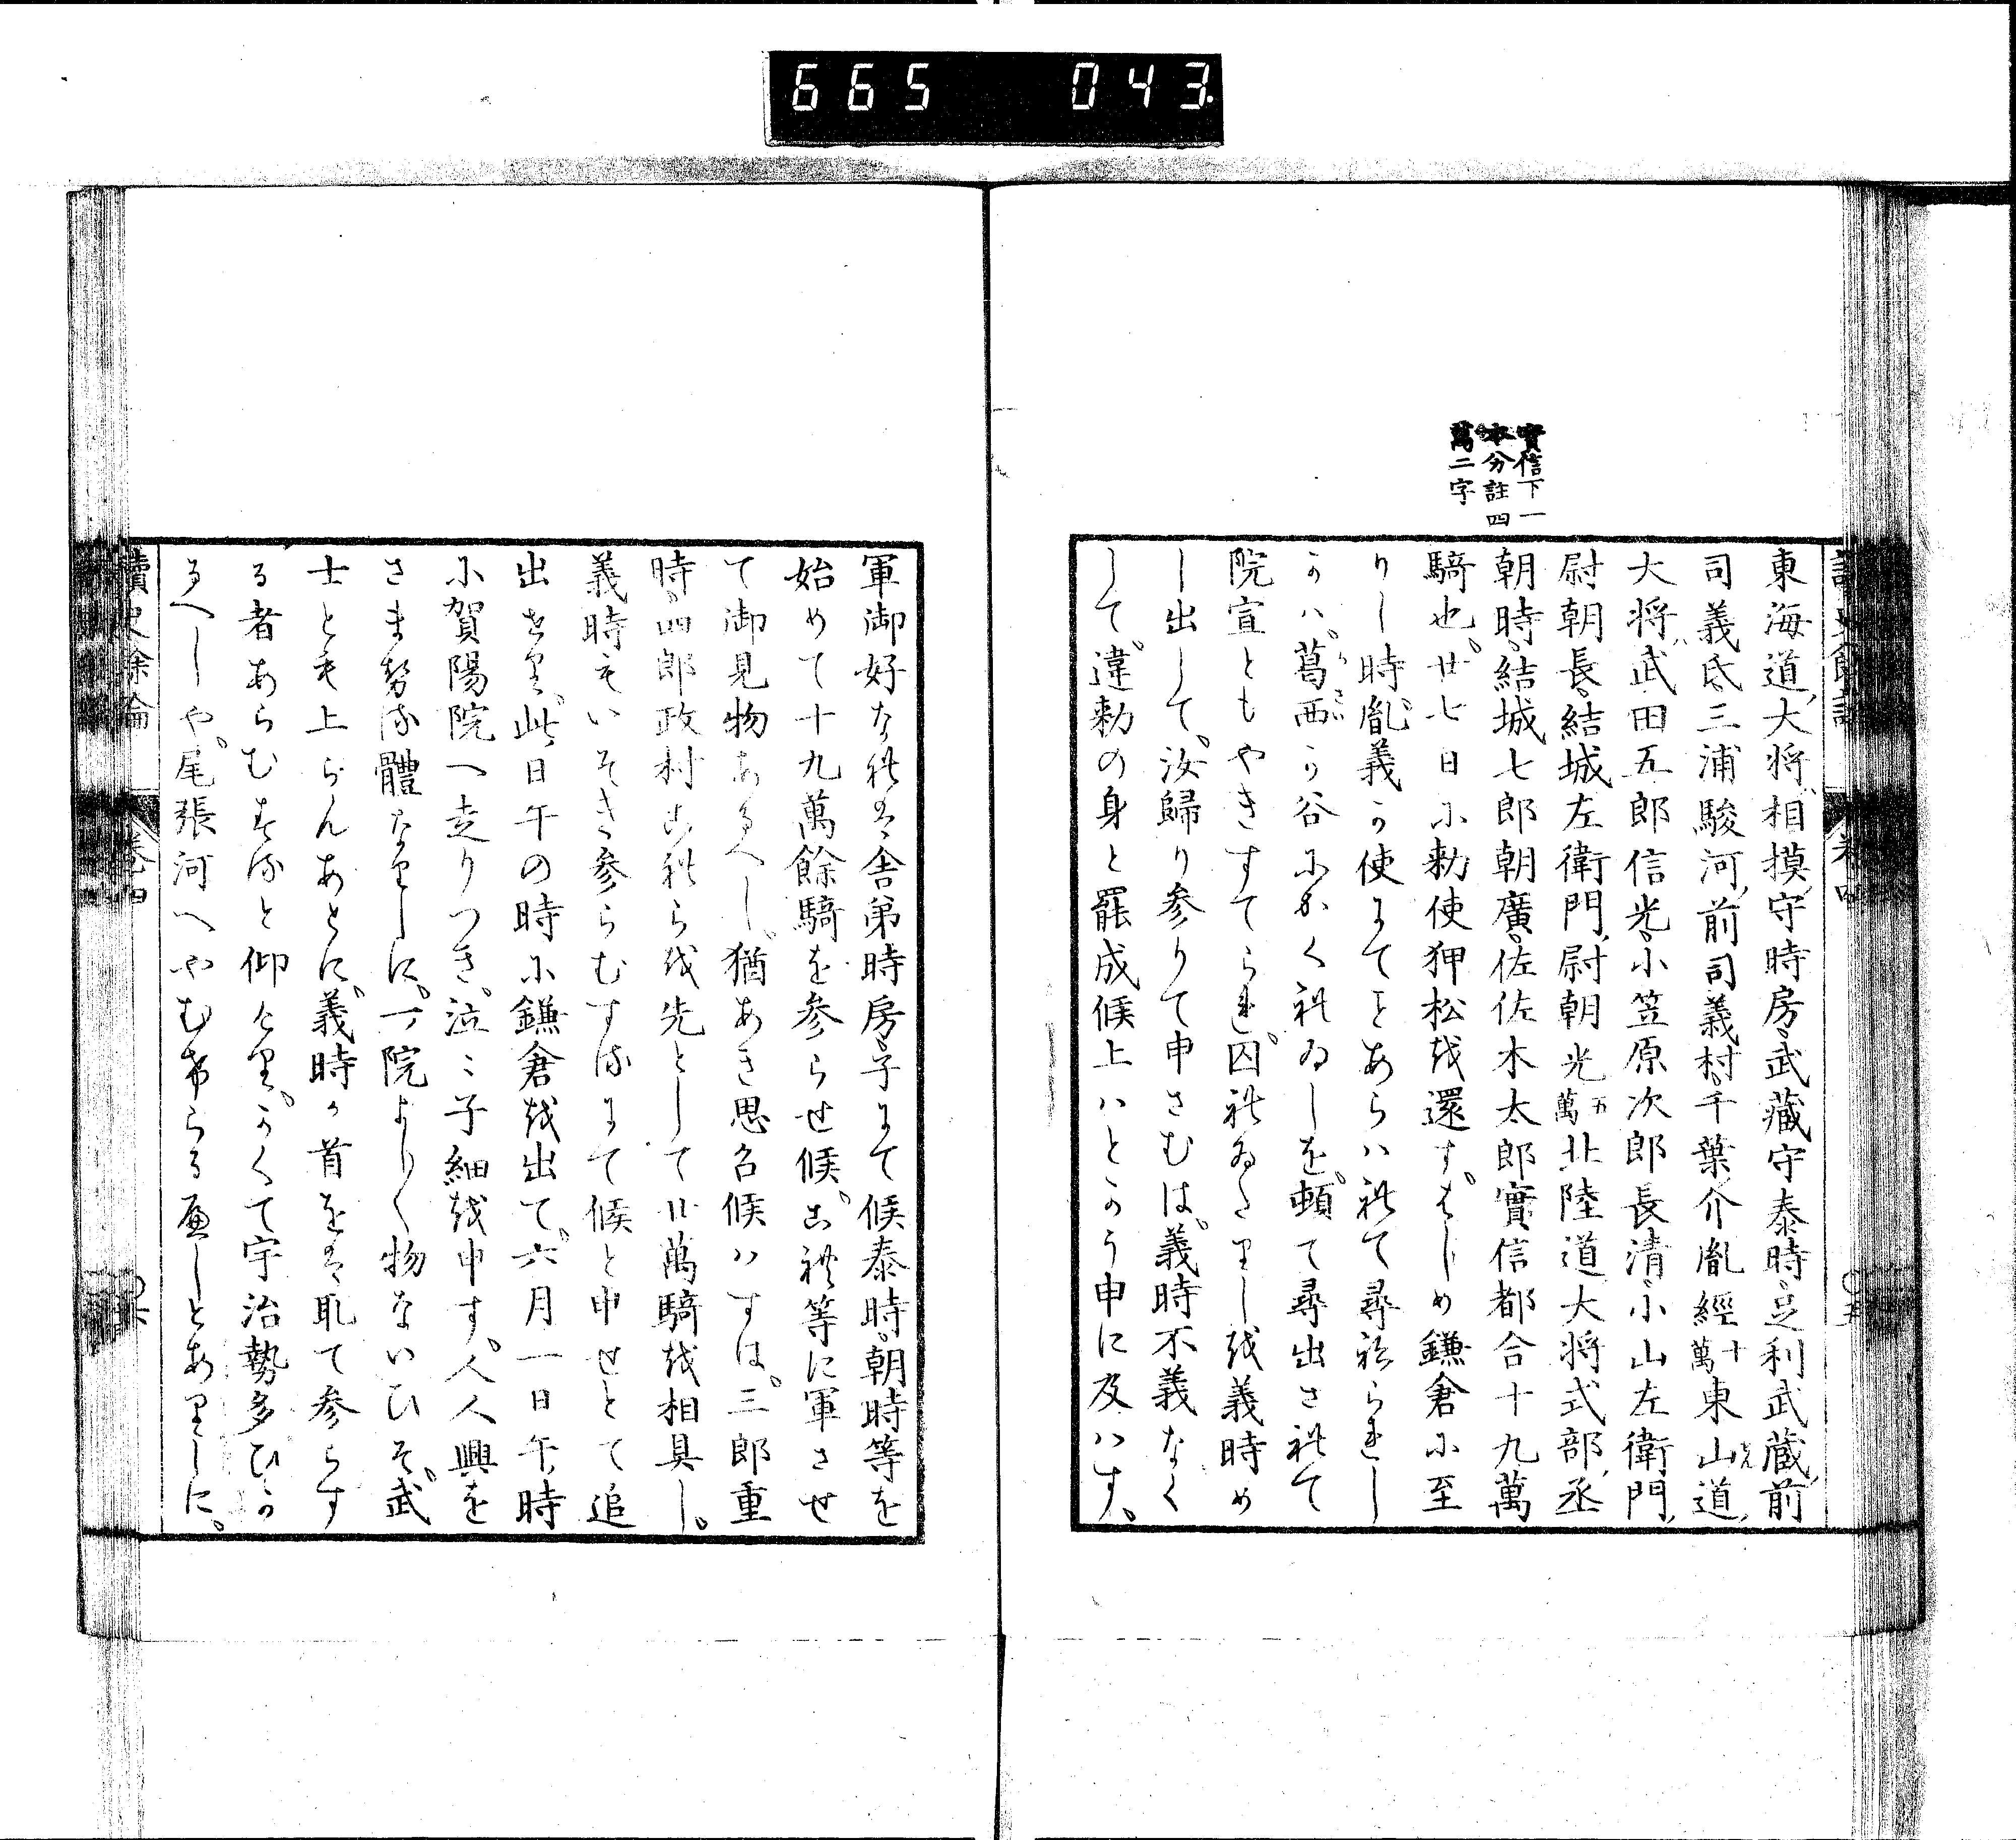 665 043
實信下一
本分註四
萬二字
東海道、大将、相摸守時房、武蔵守泰時、足利武蔵前
司義氏、三浦駿河前司義村、千葉介胤經十萬東山道、
大将、武田五郎信光、小笠原次郎長清、小山左衛門
尉朝長、結城左衛門尉朝光五萬北陸道大将式部丞
朝時、結城七郎朝廣、佐佐木太郎實信都合十九萬
騎也。廿七日に勅使狎松を還す。はじめ鎌倉に至
りし時、胤義か使にてとあらはれて尋ねられし
かは、葛西か谷にかくれゐしを、頓て尋出されて
院宣ともやきすてられ、囚れゐたりしを義時め
し出して、汝歸り参りて申さむは、義時不義なく
して、違勅の身と罷成候上ハとかう申に及ハす。
讀史餘論 卷四
軍御好なれは舎弟時房、子にて候泰時、朝時等を
始めて十九萬餘騎を参らせ候。これ等に軍させ
て御見物あるへし。猶あき思召候ハすは、三郎重
時、四郎政村これらを先として廿萬騎を相具し。
義時もいそき参らむするにて候と申せとて追
出せり。此日午の時に鎌倉を出て、六月一日午時
に賀陽院へ走りつき、泣〻子細を申す。人人興を
さま勢る體なりしに、一院よしく物ないひそ、武
士とも上らんあとに、義時か首をは取て参らす
る者あらむするとと仰せり。かくて宇治勢多ひか
るへしや、尾張河へやむけらるへしとありしに。